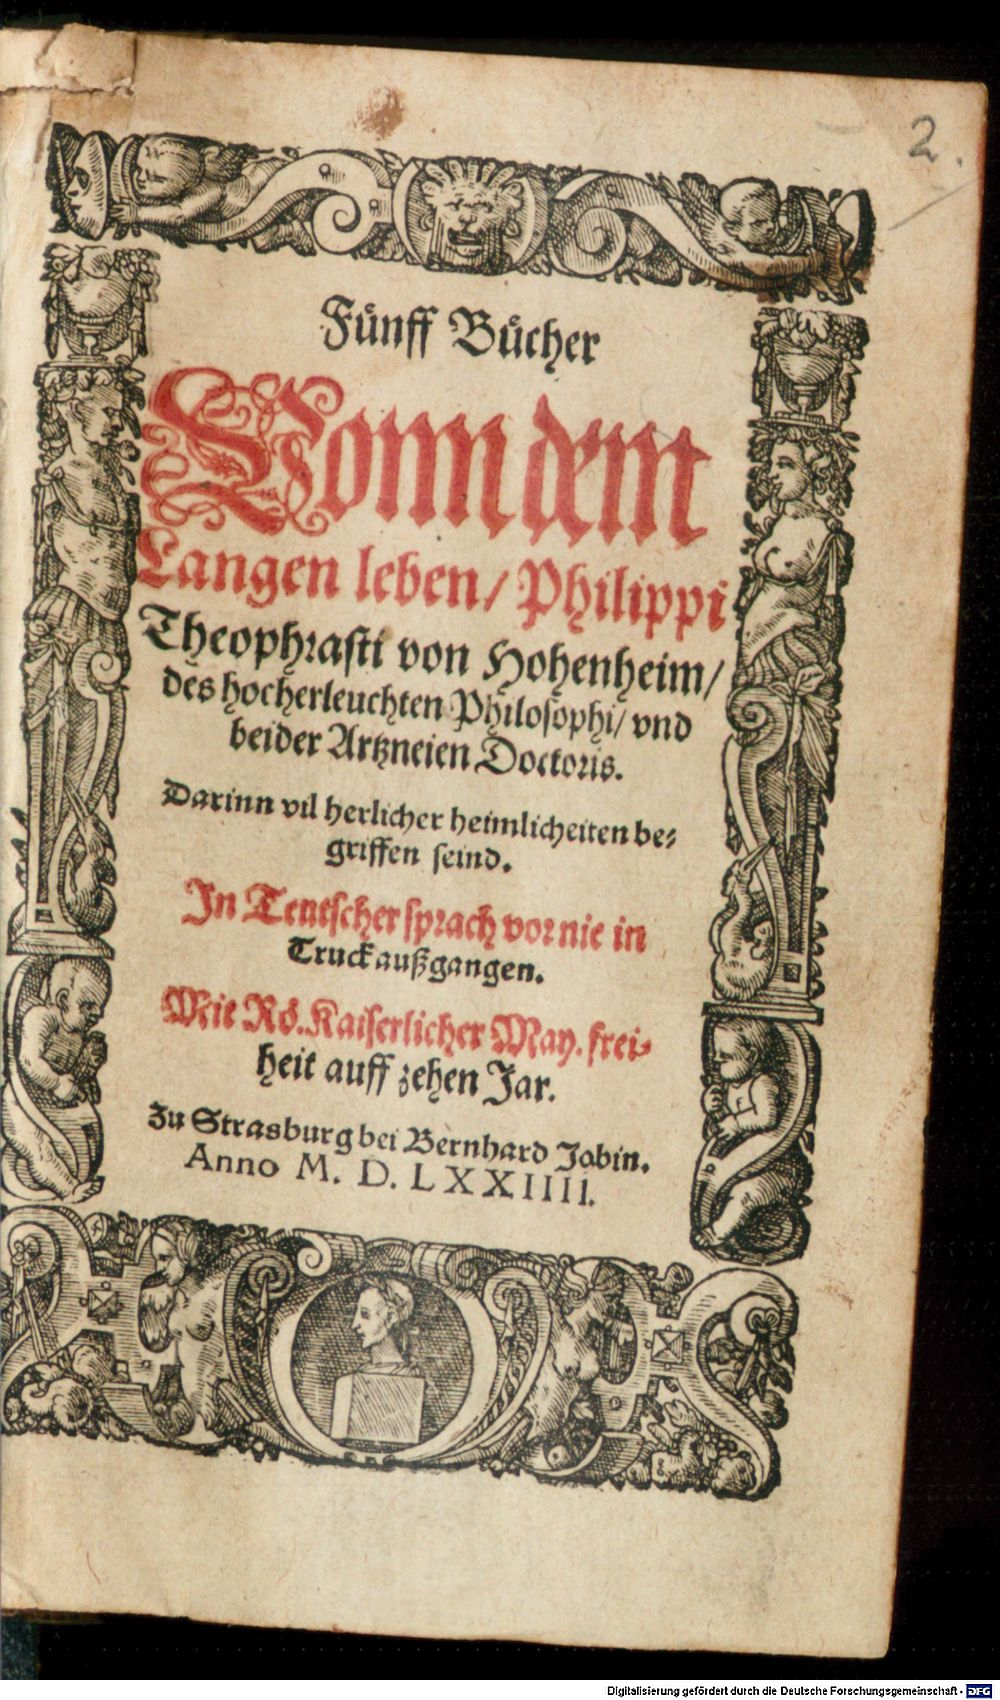 2.
Fünff Bücher
Vonn dem
Langen leben/ Philippi
Theophrasti von Hohenheim/
des hocherleuchten Philosophi/ vnd
beider Artzneien Doctoris.
Darinn vil herlicher heimlicheiten be-
griffen seind.
In Teutscher sprach vor nie in
Truck außgangen.
Mit Rö. Kaiserlicher May. frei-
heit auff zehen Jar.
Zu Strasburg bei Bernhard Jobin.
Anno M. D. LXXIIII.
Digitalisierung gefördert durch die Deutsche Forschungsgemeinschaft - DFG